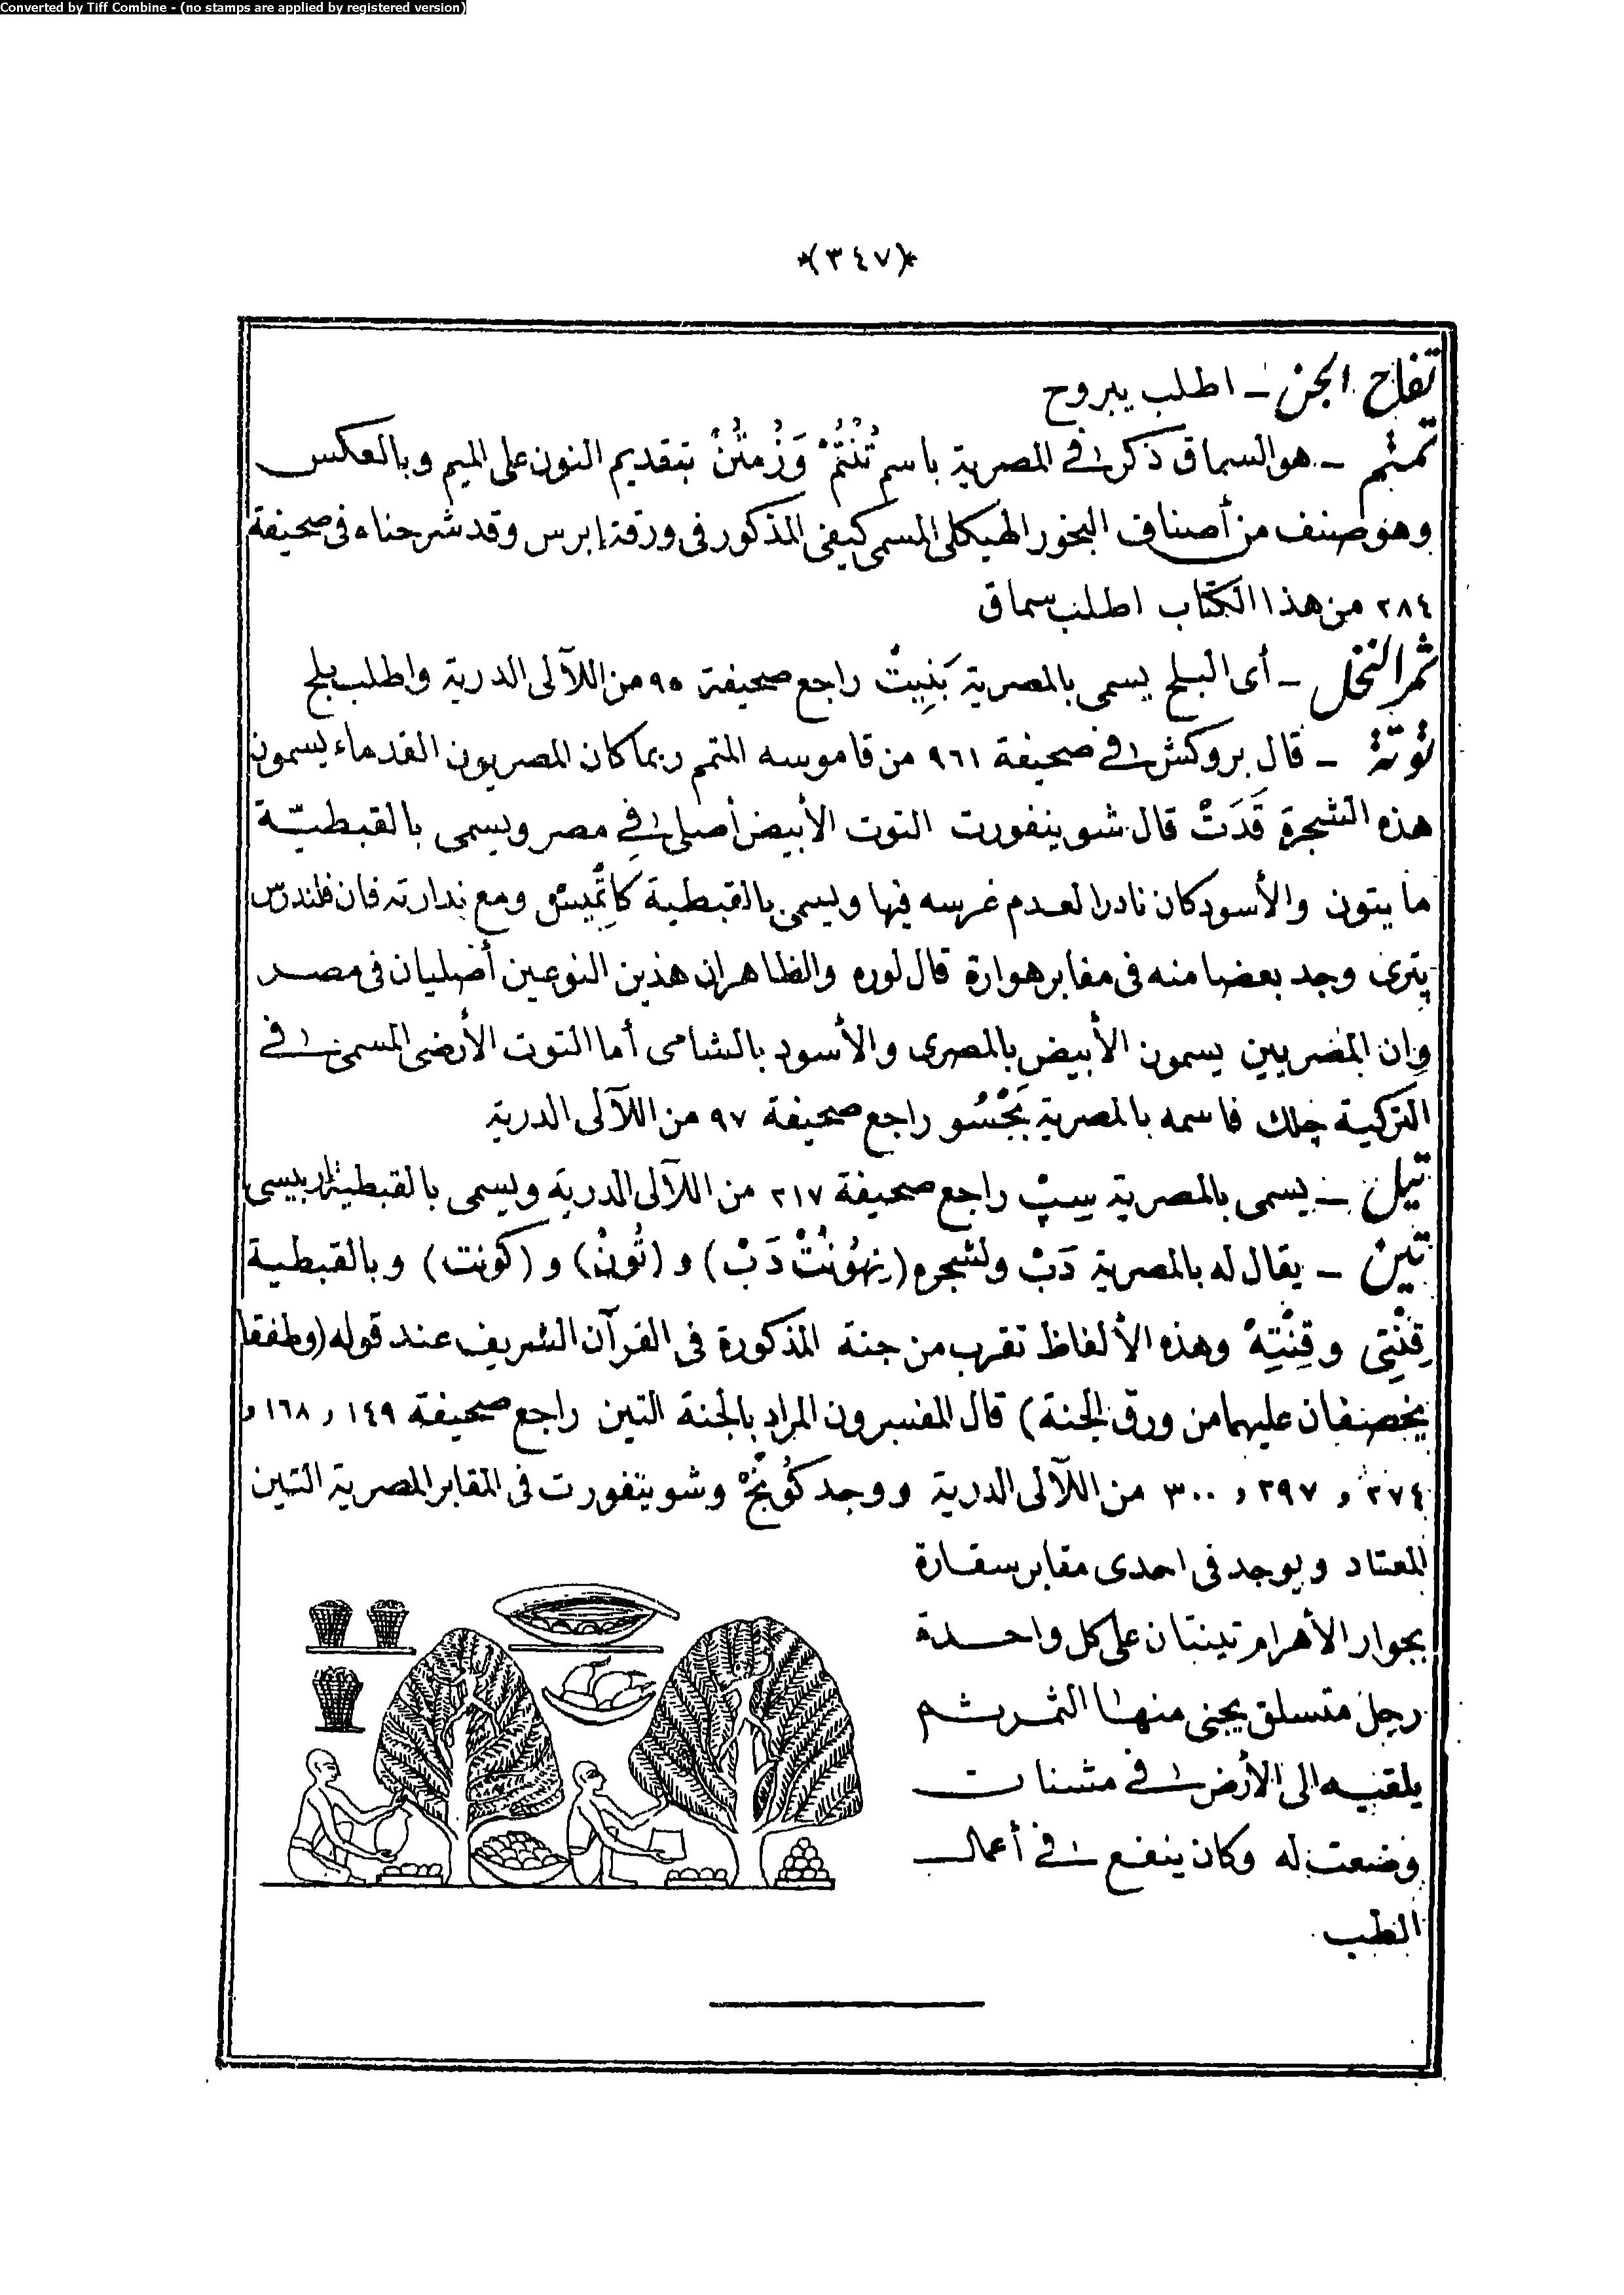 Converted by Tiff Combine - (no stamps are applied by registered version)
*(٣٤٧)*
تفاح الجن ــ اطلب يبروح
تمتم ــ هو السماق ذكر فى المصرية باسم تُنْتُمْ وَزُمتُنْ بتقديم النون على الميم وبالعكس
وهو صنف من أصناف البخور الهيكلى المسمى كيفى المذكور فى ورقة إبرس وقد شرحناه فى صحيفة
٢٨٤ من هذا الكتاب اطلب سماق
ثمر النخل ــ أى البلح يسمى بالمصرية بَنِيتْ راجع صحيفة ٩٥ من اللآلى الدرية واطلب بلح
توتة ــ قال بروكش فى صحيفة ٩٦١ من قاموسه المتمم ربما كان المصريون القدماء يسمون
هذه الشجرة قَدَتْ قال شوينفورت التوت الأبيض أصلى فى مصر ويسمى بالقبطيّة
ما يتون والأسود كان نادرا لعدم غرسه فيها ويسمى بالقبطية ومع ندارته فان فلندرس
پترى وجد بعضا منه فى مقابر هوارة قال لوره والظاهر ان هذين النوعين أصليان فى مصر
وان المصريين يسمون الأبيض بالمصرى والأسود بالشامى أما التوت الأرضى المسمى فى
التركية چلك فاسمه بالمصرية بَجْسُو راجع صحيفة ٩٧ من اللآلى الدرية
تيل ــ يسمى بالمصرية راجع صحيفة ٢١٧ من اللآلى الدرية ويسمى بالقبطية
تين ــ يقال له بالمصرية دَبْ ولشجره (نِهُونْتْ دَبْ) و (تُونْ) و (كونت) وبالقبطية
قِنْتِى وقِنْتِهْ وهذه الألفاظ تقرب من جنة المذكورة فى القرآن الشريف عند قوله (وطفقا
يخصفان عليهما من ورق الجنة) قال المفسرون المراد بالجنة التين راجع صحيفة ١٤٩ و ١٦٨ و
٢٧٤ و ٢٩٧ و ٣٠٠ من اللآلى الدرية ووجد وشوينفورت فى المقابر المصرية التين
المعتاد ويوجد فى احدى مقابر سقارة
بجوار الأهرام تينتان على كل واحدة
رجل متسلق يجنى منها الثمر ثم
يلقيه الى الأرض فى مشنات
وضعت له وكان ينفع فى أعمال
الطب